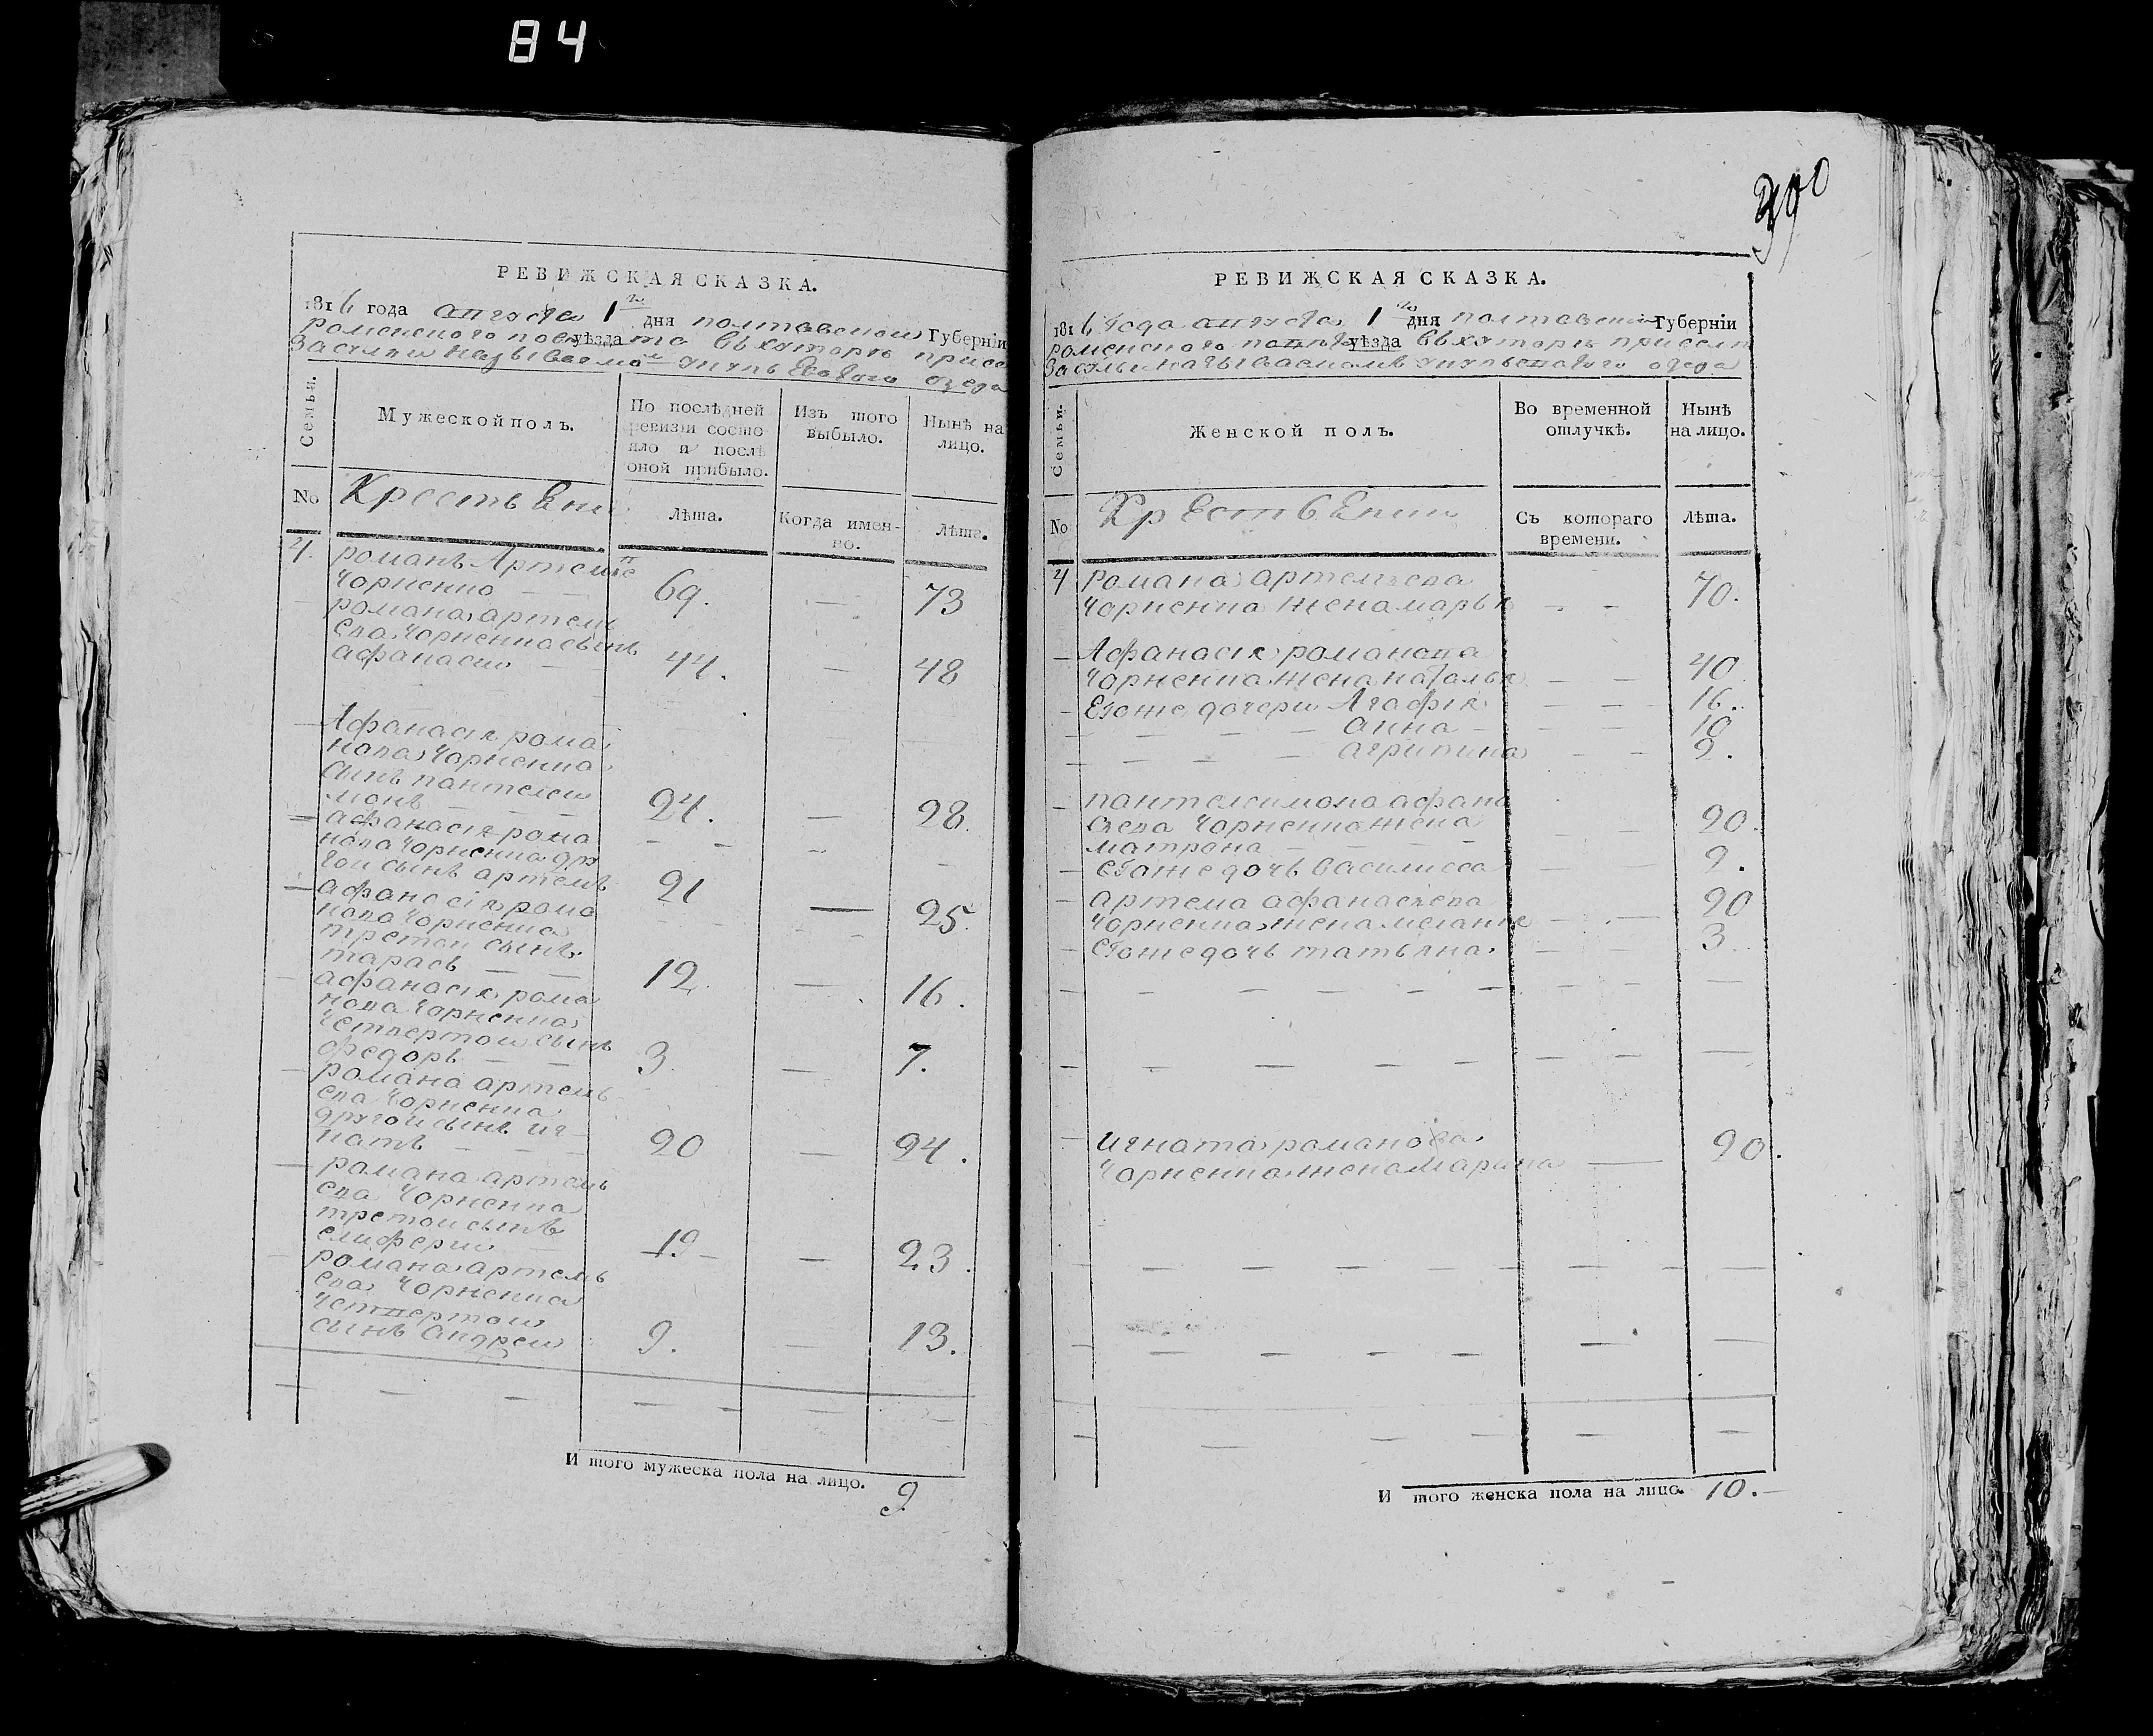 84
390
РЕВИЖСКАЯ СКАЗКА.
1816 года августа 1го дня полтавской Губерніи
роменского повѣта уѣзда въ хуторе присел
засулии называемом
Семьи.
Мужеской полъ.
По послѣдней ревизіи состояло и послѣ оной прибыло.
Изъ того выбыло.
Нынѣ на лицо.
No
Крестьяне
лѣта.
Когда именно.
лѣта.
4. романъ Артемие
Чорненко — — 69. — 73
романа артемь
ева Чорненка сынъ
афанасии — 44. — 48
Афанасія рома
нова Чорненка
сынъ пантелеи
монъ — — 24. — 28.
афанасія рома
нова Чорненка дру
гои сынъ артемъ 21 — 25.
афанасія рома
нова Чорненка
третои сынъ
тарасъ — — 12. — 16.
афанасія рома
нова Чорненка
четвертои сынъ
федоръ — — 3. — 7.
романа артемь
ева Чорненка
другои сынъ иг
натъ — — 20 — 24.
романа артемь
ева Чорненка
третои сынъ
елиферии — 19 — 23.
романа артемь
ева Чорненка
четвертои
сынъ андреи 9. — 13.
И того мужеска пола на лицо. 9
РЕВИЖСКАЯ СКАЗКА.
1816 года августа 1го дня полтавской Губерніи
роменского уѣзда въ хуторе присел
Семьи.
Женской полъ.
Во временной отлучкѣ.
Нынѣ на лицо.
No
Крестьянки
Съ котораго времени.
лѣта.
4 Романа артемьева
Чорненка жена марья — — 70.
— Афанасія романова
Чорненка жена наталья — — 40
— Егоже дочери Агафія — — 16.
— — — — анна — — 10
— — — — агрипина — — 2.
— пантелеимона афана
сева Чорненка жена
матрона — — 20.
— Егоже дочь василиса — 2.
— артема афанасиева
Чорненка жена мелания — — 20
— Егоже дочь татьяна — — 3.
— игната романова
Чорненка жена марина — 20.
И того женска пола на лицо. 10.